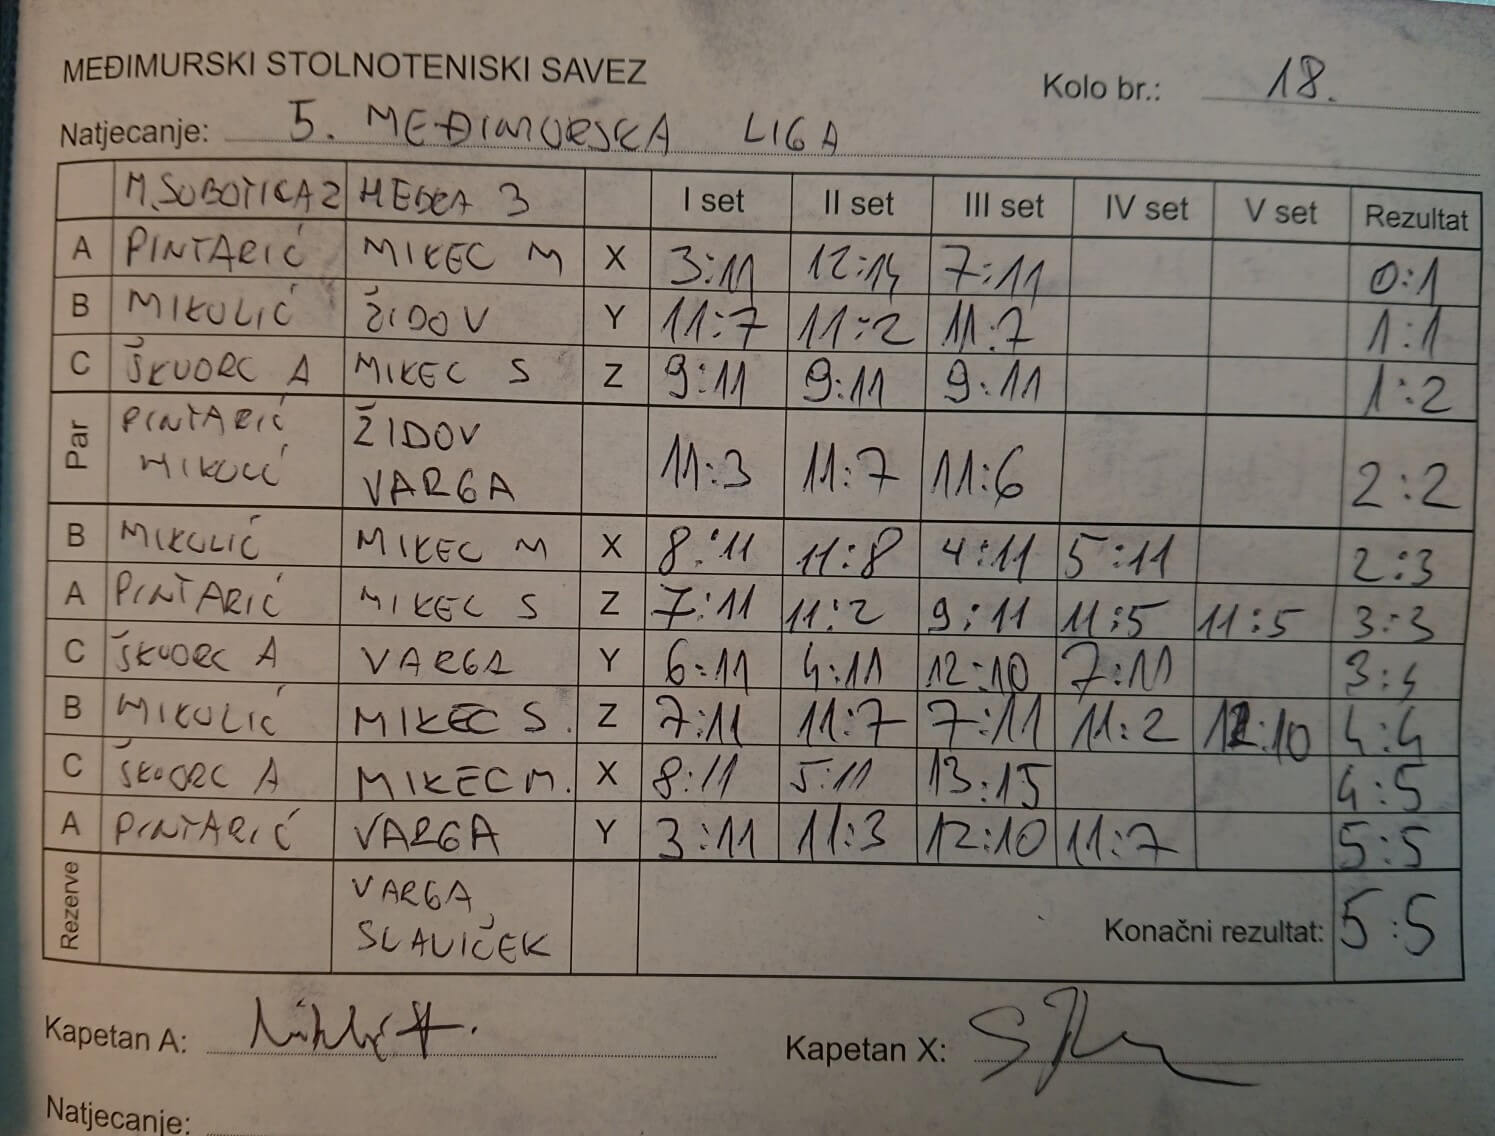 MEĐIMURSKI STOLNOTENISKI SAVEZ
Kolo br.: 18.
Natjecanje: 5. MEĐIMURSKA LIGA
M. SUBOTICA 2 HEDRA 3 I set II set III set IV set V set Rezultat
A PINTARIĆ MIKEC M X 3:11 12:14 7:11 0:1
B MIKULIĆ ŽIDOV Y 11:7 11:2 11:7 1:1
C ŠKVORC A MIKEC S Z 9:11 9:11 9:11 1:2
Par PINTARIĆ MIKULIĆ ŽIDOV VARGA 11:3 11:7 11:6 2:2
B MIKULIĆ MIKEC M X 8:11 11:8 4:11 5:11 2:3
A PINTARIĆ MIKEC S Z 7:11 11:2 9:11 11:5 11:5 3:3
C ŠKVORC A VARGA Y 6:11 4:11 12:10 7:11 3:4
B MIKULIĆ MIKEC S. Z 7:11 11:7 7:11 11:2 12:10 4:4
C ŠKVORC A MIKEC M. X 8:11 5:11 13:15 4:5
A PINTARIĆ VARGA Y 3:11 11:3 12:10 11:7 5:5
Rezerve VARGA, SLAVIČEK Konačni rezultat: 5:5
Kapetan A: Kapetan X:
Natjecanje: